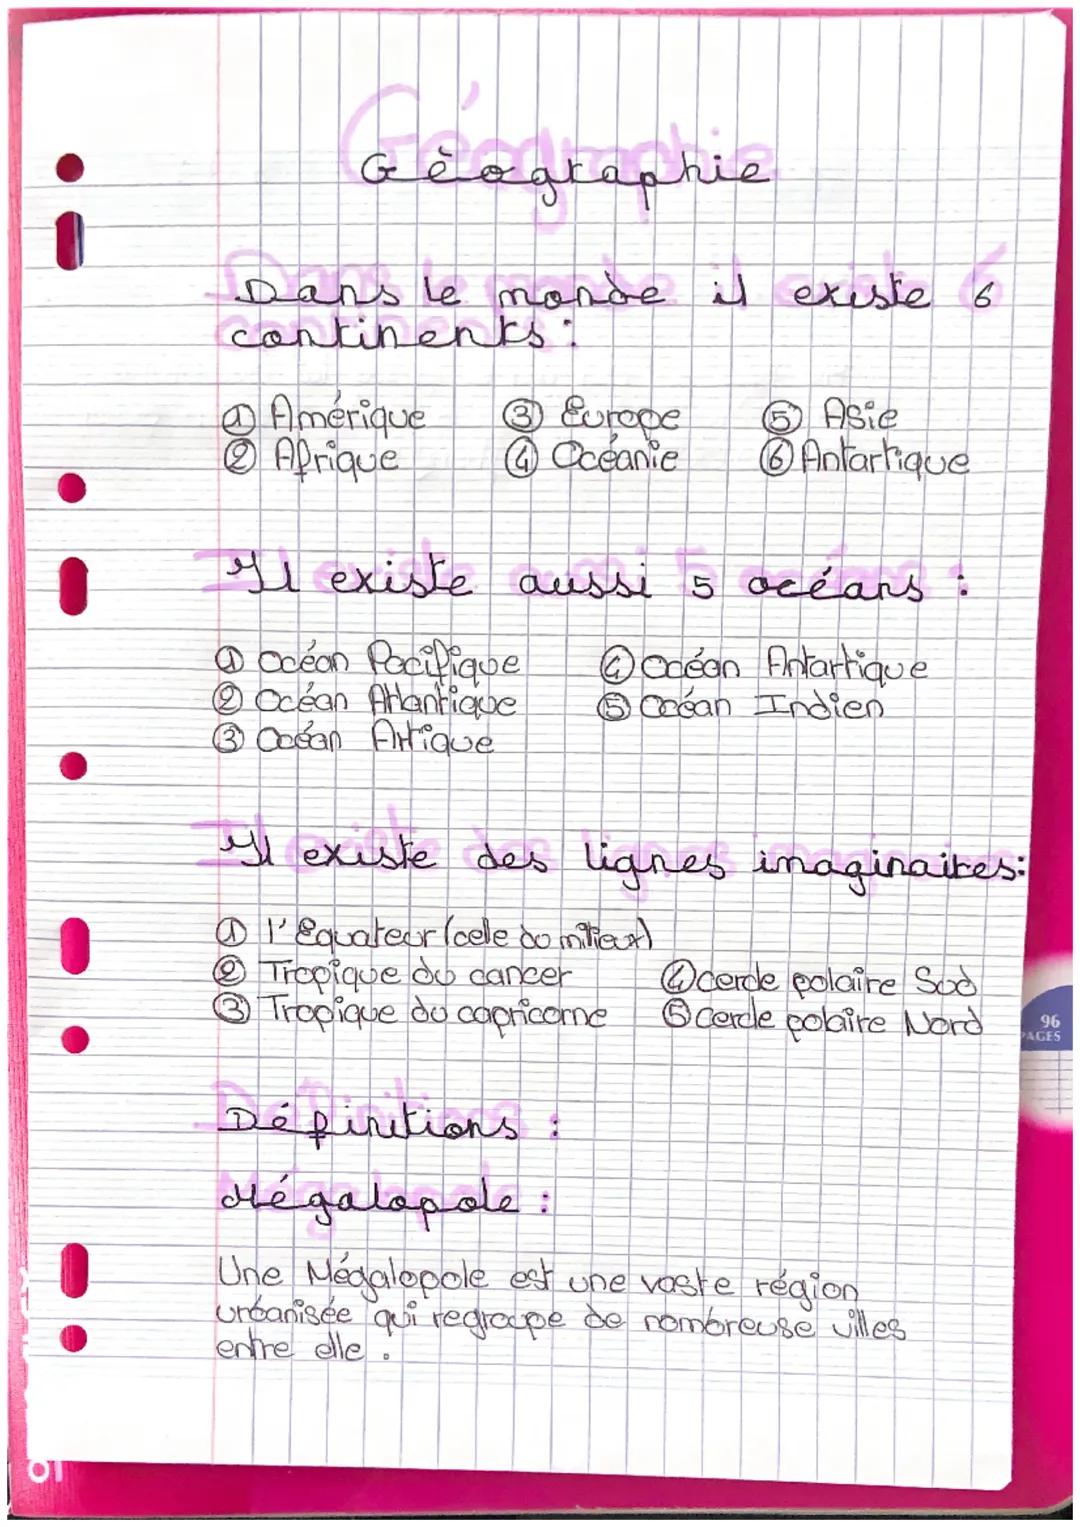 Géographie
Dans le monde il existe 6
continents :
① Amérique ③ Europe ⑤ Asie
② Afrique ④ Océanie ⑥ Antartique
Il existe aussi 5 océans :
① Océan Pacifique ④ Océan Antartique
② Océan Atlantique ⑤ Océan Indien
③ Océan Artique
Il existe des lignes imaginaires:
① l'Equateur (celle du milieu)
② Tropique du cancer ④ cercle polaire Sud
③ Tropique du capricorne ⑤ cercle polaire Nord
96
PAGES
Définitions :
Mégalopole :
Une Mégalopole est une vaste région
urbanisée qui regroupe de nombreuse villes
entre elle .